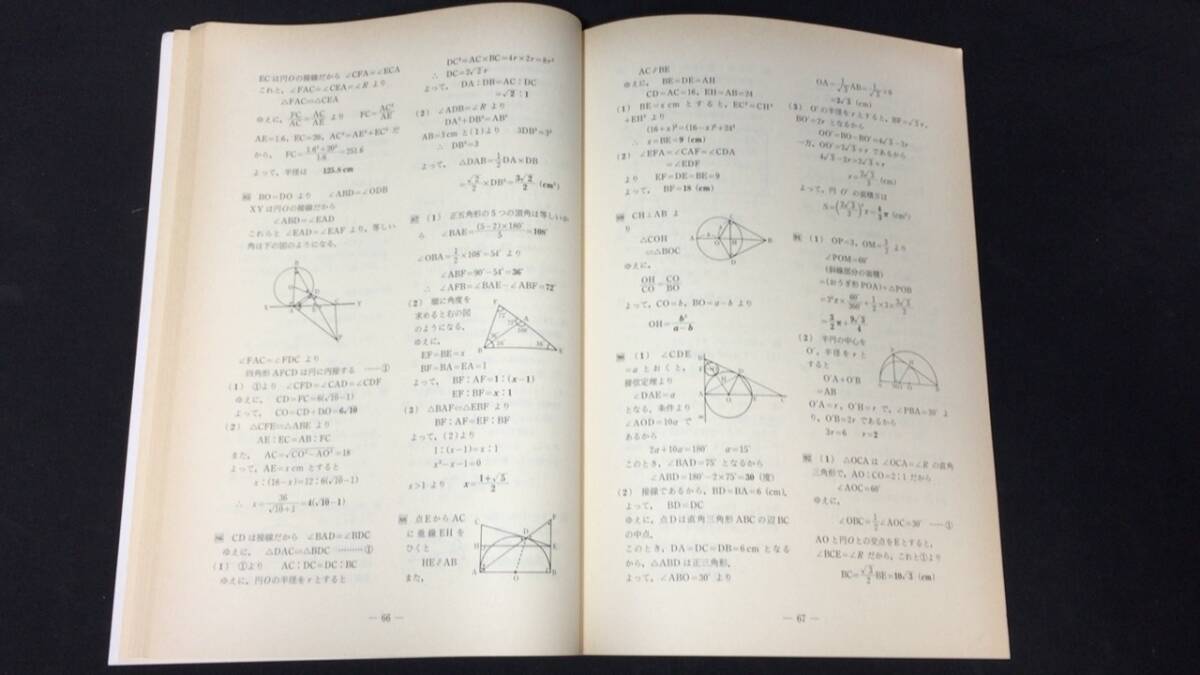 ECは円Oの接線だから ∠CFA=∠ECA
これと，∠FAC=∠CEA=∠R より
△FAC∽△CEA
ゆえに，FC/AC=AC/AE より FC=AC²/AE
AE=1.6，EC=20，AC²=AE²+EC² だ
から，FC=(1.6²+20²)/1.6=251.6
よって，半径は 125.8cm
BO=DO より ∠ABD=∠ODB
XYは円Oの接線だから
∠ABD=∠EAD
これらと ∠EAD=∠EAF より，等しい
角は下の図のようになる．
∠FAC=∠FDC より
四角形AFCDは円に内接する ……①
(1) ①より ∠CFD=∠CAD=∠CDF
ゆえに，CD=FC=6(√10-1)
よって，CO=CD+DO=6√10
(2) △CFE∽△ABE より
AE：EC=AB：FC
また，AC=√(CO²-AO²)=18
よって，AE=xcm とすると
x：(18-x)=12：6(√10-1)
∴ x=36/(√10+1)=4(√10-1)
CDは接線だから ∠BAD=∠BDC
ゆえに，△DAC∽△BDC ………①
(1) ①より AC：DC=DC：BC
ゆえに，円Oの半径をrとすると
DC²=AC×BC=4r×2r=8r²
∴ DC=2√2r
よって，DA：DB=AC：DC
=√2：1
(2) ∠ADB=∠R より
DA²+DB²=AB²
AB=3cmと(1)より 3DB²=3²
∴ DB²=3
よって，△DAB=1/2 DA×DB
=√2/2×DB²=3√2/2 (cm²)
(1) 正五角形の5つの頂角は等しいか
ら ∠BAE=(5-2)×180°/5=108°
∠OBA=1/2×108°=54° より
∠ABF=90°-54°=36°
∴ ∠AFB=∠BAE-∠ABF=72°
(2) 順に角度を
求めると右の図
のようになる．
EF=BE=x
BF=BA=EA=1
よって，BF：AF=1：(x-1)
EF：BF=x：1
(3) △BAF∽△EBF より
BF：AF=EF：BF
よって，(2)より
1：(x-1)=x：1
x²-x-1=0
x>1 より x=(1+√5)/2
点EからAC
に垂線EHを
ひくと
HE∥AB
また，
― 66 ―
AC∥BE
ゆえに，BE=DE=AH
CD=AC=16，EH=AB=24
(1) BE=xcm とすると，EC²=CH²
+EH² より
(16+x)²=(16-x)²+24²
∴ x=BE=9 (cm)
(2) ∠EFA=∠CAF=∠CDA
=∠EDF
より EF=DE=BE=9
よって，BF=18 (cm)
CH⊥AB よ
り
△COH
∽△BOC
ゆえに，
OH/CO=CO/BO
よって，CO=b，BO=a-b より
OH=b²/(a-b)
(1) ∠CDE
=a とおくと，
接弦定理より
∠DAE=a
となる．条件より
∠AOD=10a で
あるから
2a+10a=180° a=15°
このとき，∠BAD=75° となるから
∠ABD=180°-2×75°=30 (度)
(2) 接線であるから，BD=BA=6 (cm)，
よって，BD=DC
ゆえに，点Dは直角三角形ABCの辺BC
の中点．
このとき，DA=DC=DB=6cm となる
から，△ABDは正三角形．
よって，∠ABO=30° より
OA=1/√3 AB=1/√3×6
=2√3 (cm)
(3) O′の半径をrとすると，BF=√3r，
BO′=2r となるから
OO′=BO-BO′=4√3-2r
一方，OO′=2√3+r であるから
4√3-2r=2√3+r
r=2√3/3 (cm)
よって，円O′の面積Sは
S=(2√3/3)²π=4/3π (cm²)
91 (1) OP=3，OM=3/2 より
∠POM=60°
(斜線部分の面積)
=(おうぎ形POA)+△POB
=3²π×60°/360°+1/2×3×3√3/2
=3/2π+9√3/4
(2) 半円の中心を
O′，半径をrと
すると
O′A+O′B
=AB
O′A=r，O′H=r で，∠PBA=30° よ
り，O′B=2r であるから
3r=6 r=2
92 (1) △OCAは∠OCA=∠R の直角
三角形で，AO：CO=2：1だから
∠AOC=60°
ゆえに，
∠OBC=1/2∠AOC=30° ……①
AOと円Oとの交点をEとすると，
∠BCE=∠R だから，これと①より
BC=√3/2 BE=10√3 (cm)
― 67 ―